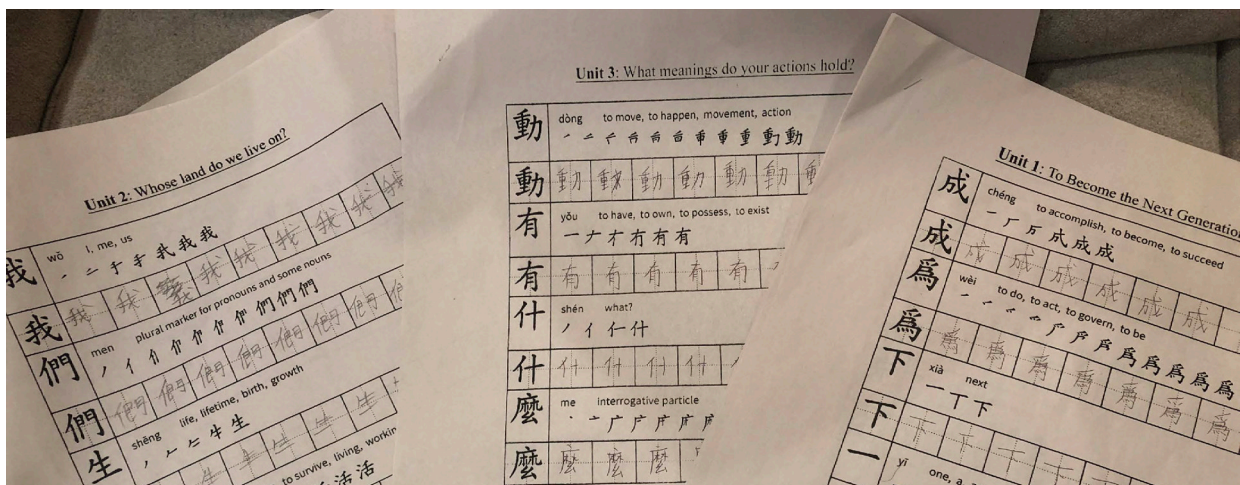 Unit 2: Whose land do we live on?
我
wǒ I, me, us
我 我 我
我
我 我 我 我 我 我 我
們
men plural marker for pronouns and some nouns
們 們 們
們
們 們 們 們 們 們 們
生
shēng life, lifetime, birth, growth
牛 生
to survive, living, workin
活 活
Unit 3: What meanings do your actions hold?
動
dòng to move, to happen, movement, action
重 動 動
動
動 動 動 動 動
有
yǒu to have, to own, to possess, to exist
一 ナ 有 有
有
有 有 有 有 有
什
shén what?
丿 亻 什
什
什 什 什 什
麼
me interrogative particle
麼
麼 麼 麼
Unit 1: To Become the Next Generation
成
chéng to accomplish, to become, to succeed
一 厂 成 成
成
成 成 成 成 成 成
爲
wèi to do, to act, to govern, to be
爲 爲 爲
爲 爲 爲 爲 爲 爲 爲
下
xià next
一 丅 下
下
下 下 下 下
一
yī one, a